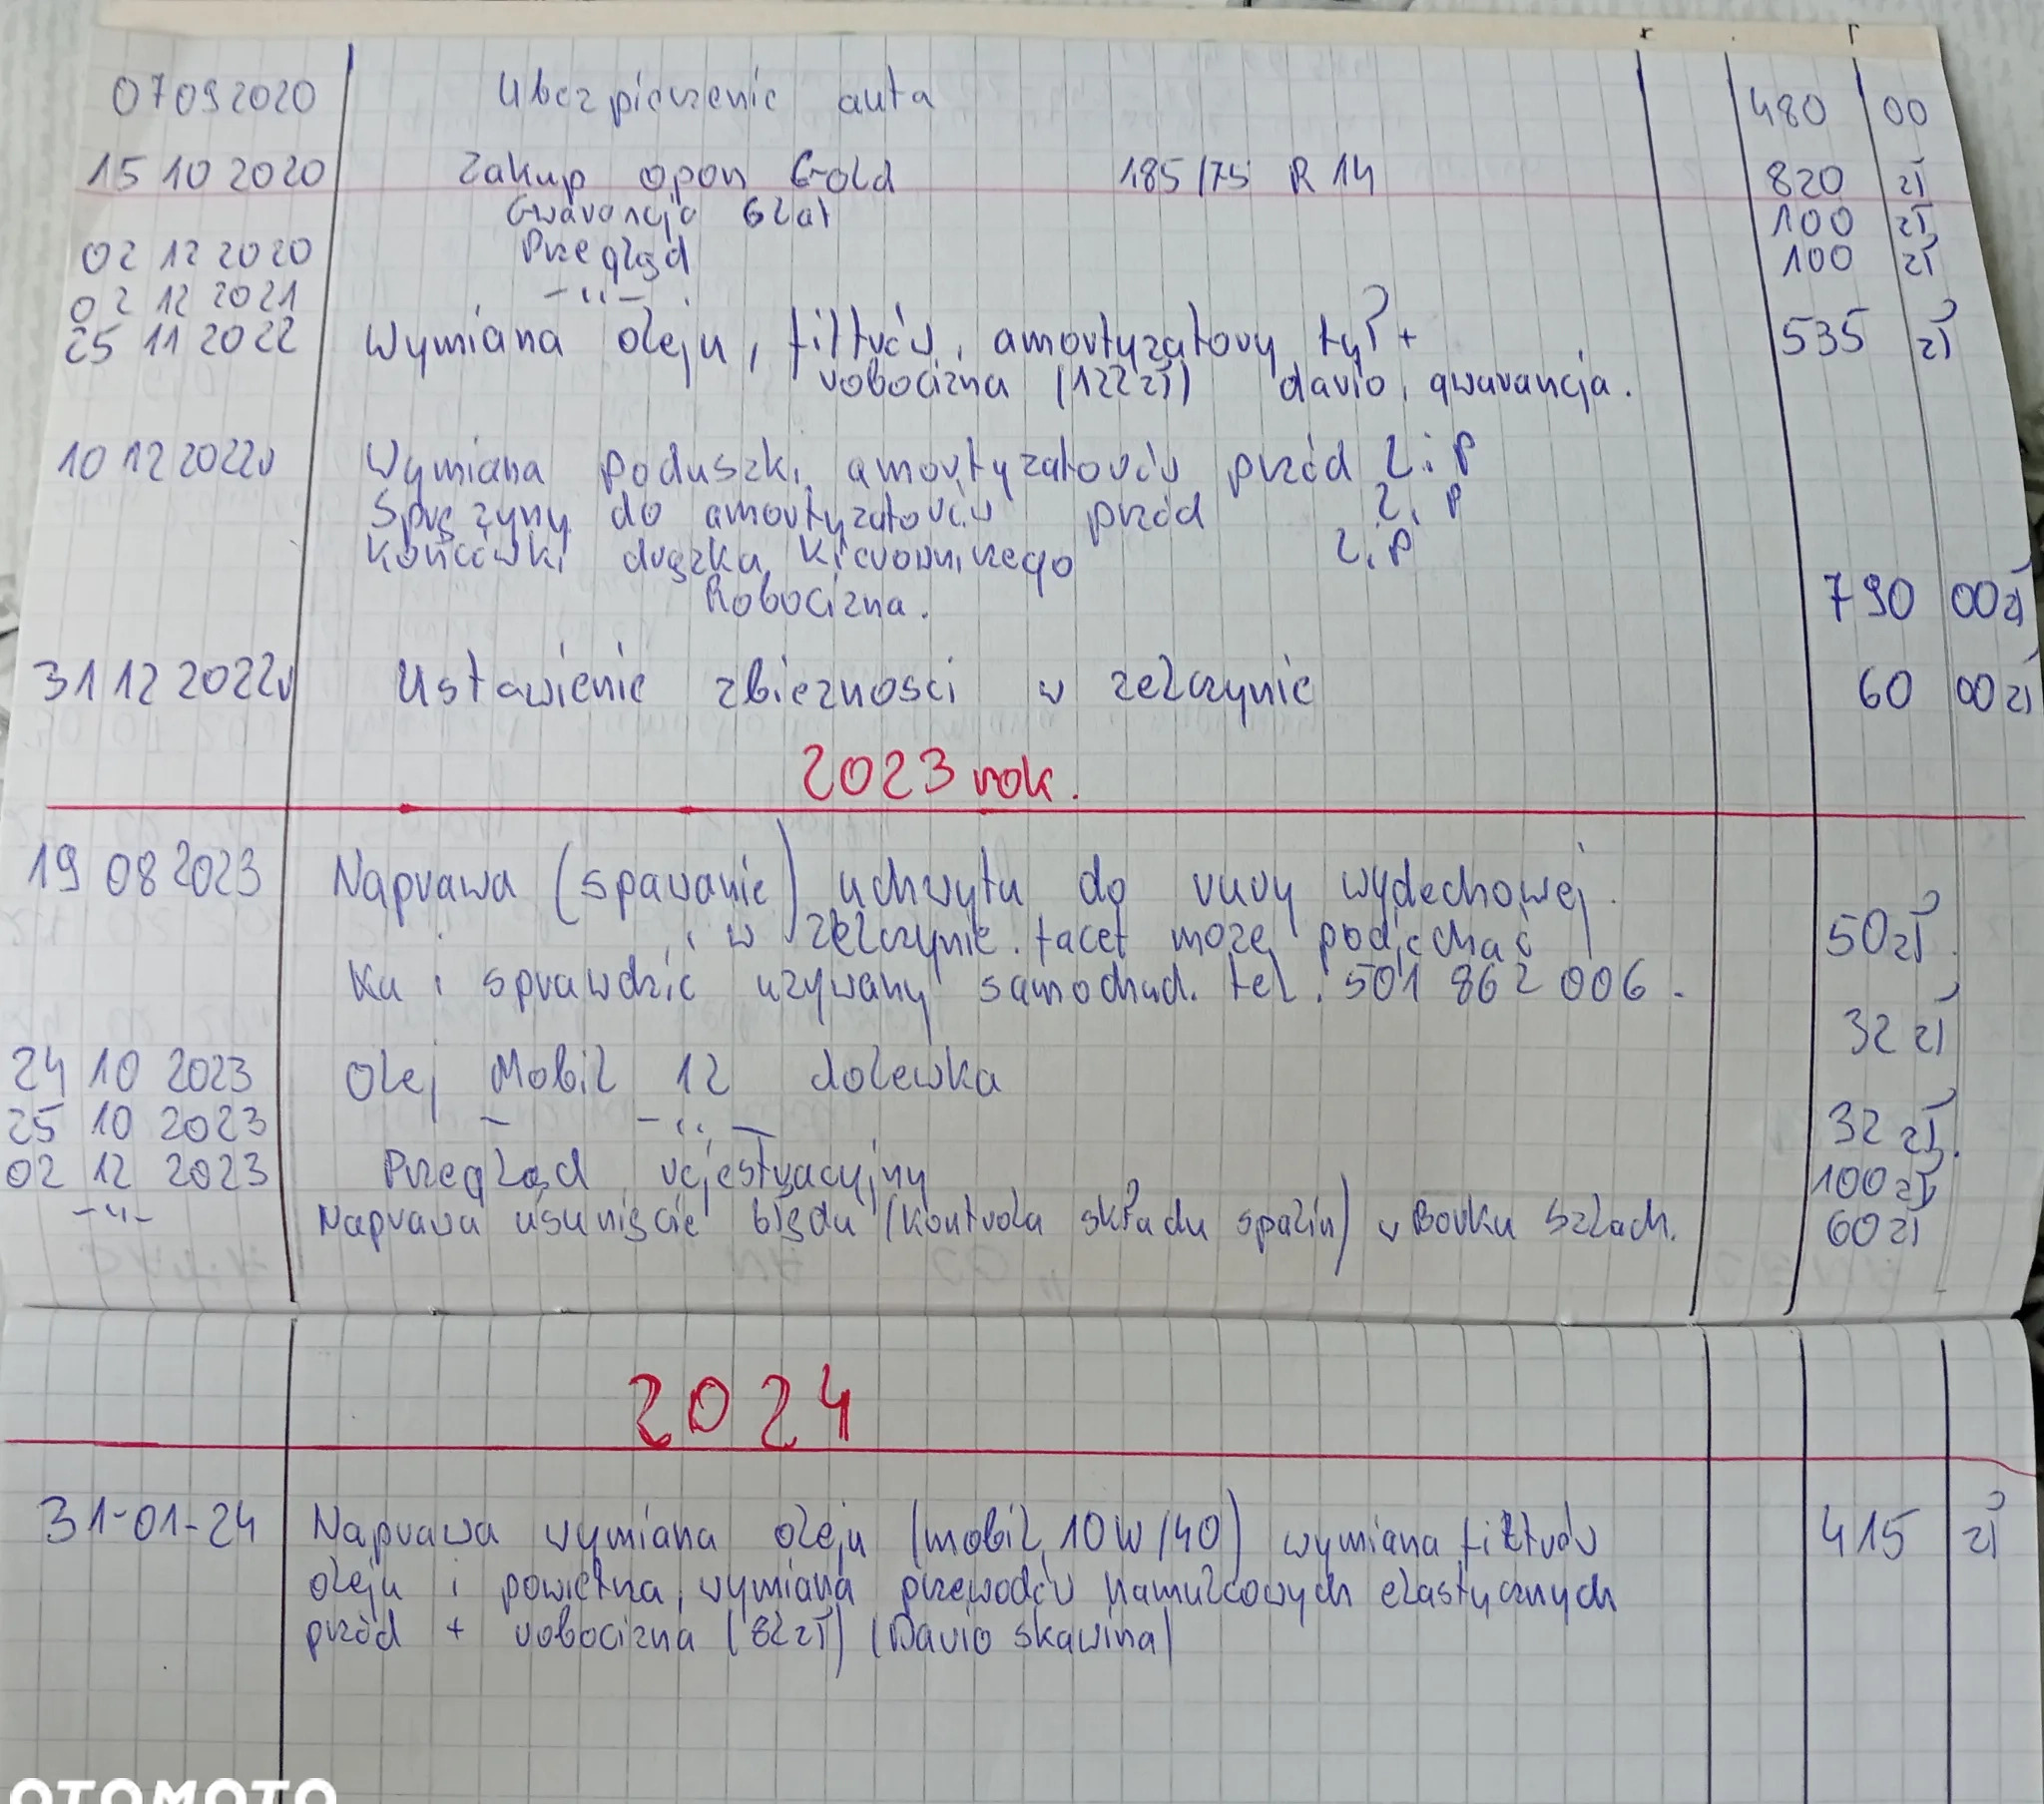 07 09 2020 Ubezpieczenie auta 480 00
15 10 2020 Zakup opon Gold 185/75 R 14 820 zł
Gwarancja 6 lat 100 zł
02 12 2020 Przegląd 100 zł
02 12 2021 -"-
25 11 2022 Wymiana oleju, filtrów, amortyzatory tył + 535 zł
robocizna (122 zł) davio, gwarancja.
10 12 2022r Wymiana poduszki amortyzatorów przód L i P
Sprężyny do amortyzatorów przód L i P
Końcówki drążka kierowniczego L i P
Robocizna. 790 00 zł
31 12 2022r Ustawienie zbieznosci w zelczynie 60 00 zł
2023 rok.
19 08 2023 Naprawa (spawanie) uchwytu do rury wydechowej.
w zelczynie. facet może podjechać 50 zł.
Ku i sprawdzić uzywany samochud. tel. 501 862 006.
32 zł
24 10 2023 Olej Mobil 1l dolewka
25 10 2023 - -"- 32 zł.
02 12 2023 Przegląd rejestracyjny 100 zł
-"- Naprawa usunięcie błędu (kontrola składu spalin) w Borku Szlach. 60 zł
2024
31-01-24 Naprawa wymiana oleju (mobil 10W/40) wymiana filtrów 415 zł
oleju i powietrza, wymiana przewodów hamulcowych elastycznych
przód + robocizna (82 zł) (Davio Skawina)
OTOMOTO